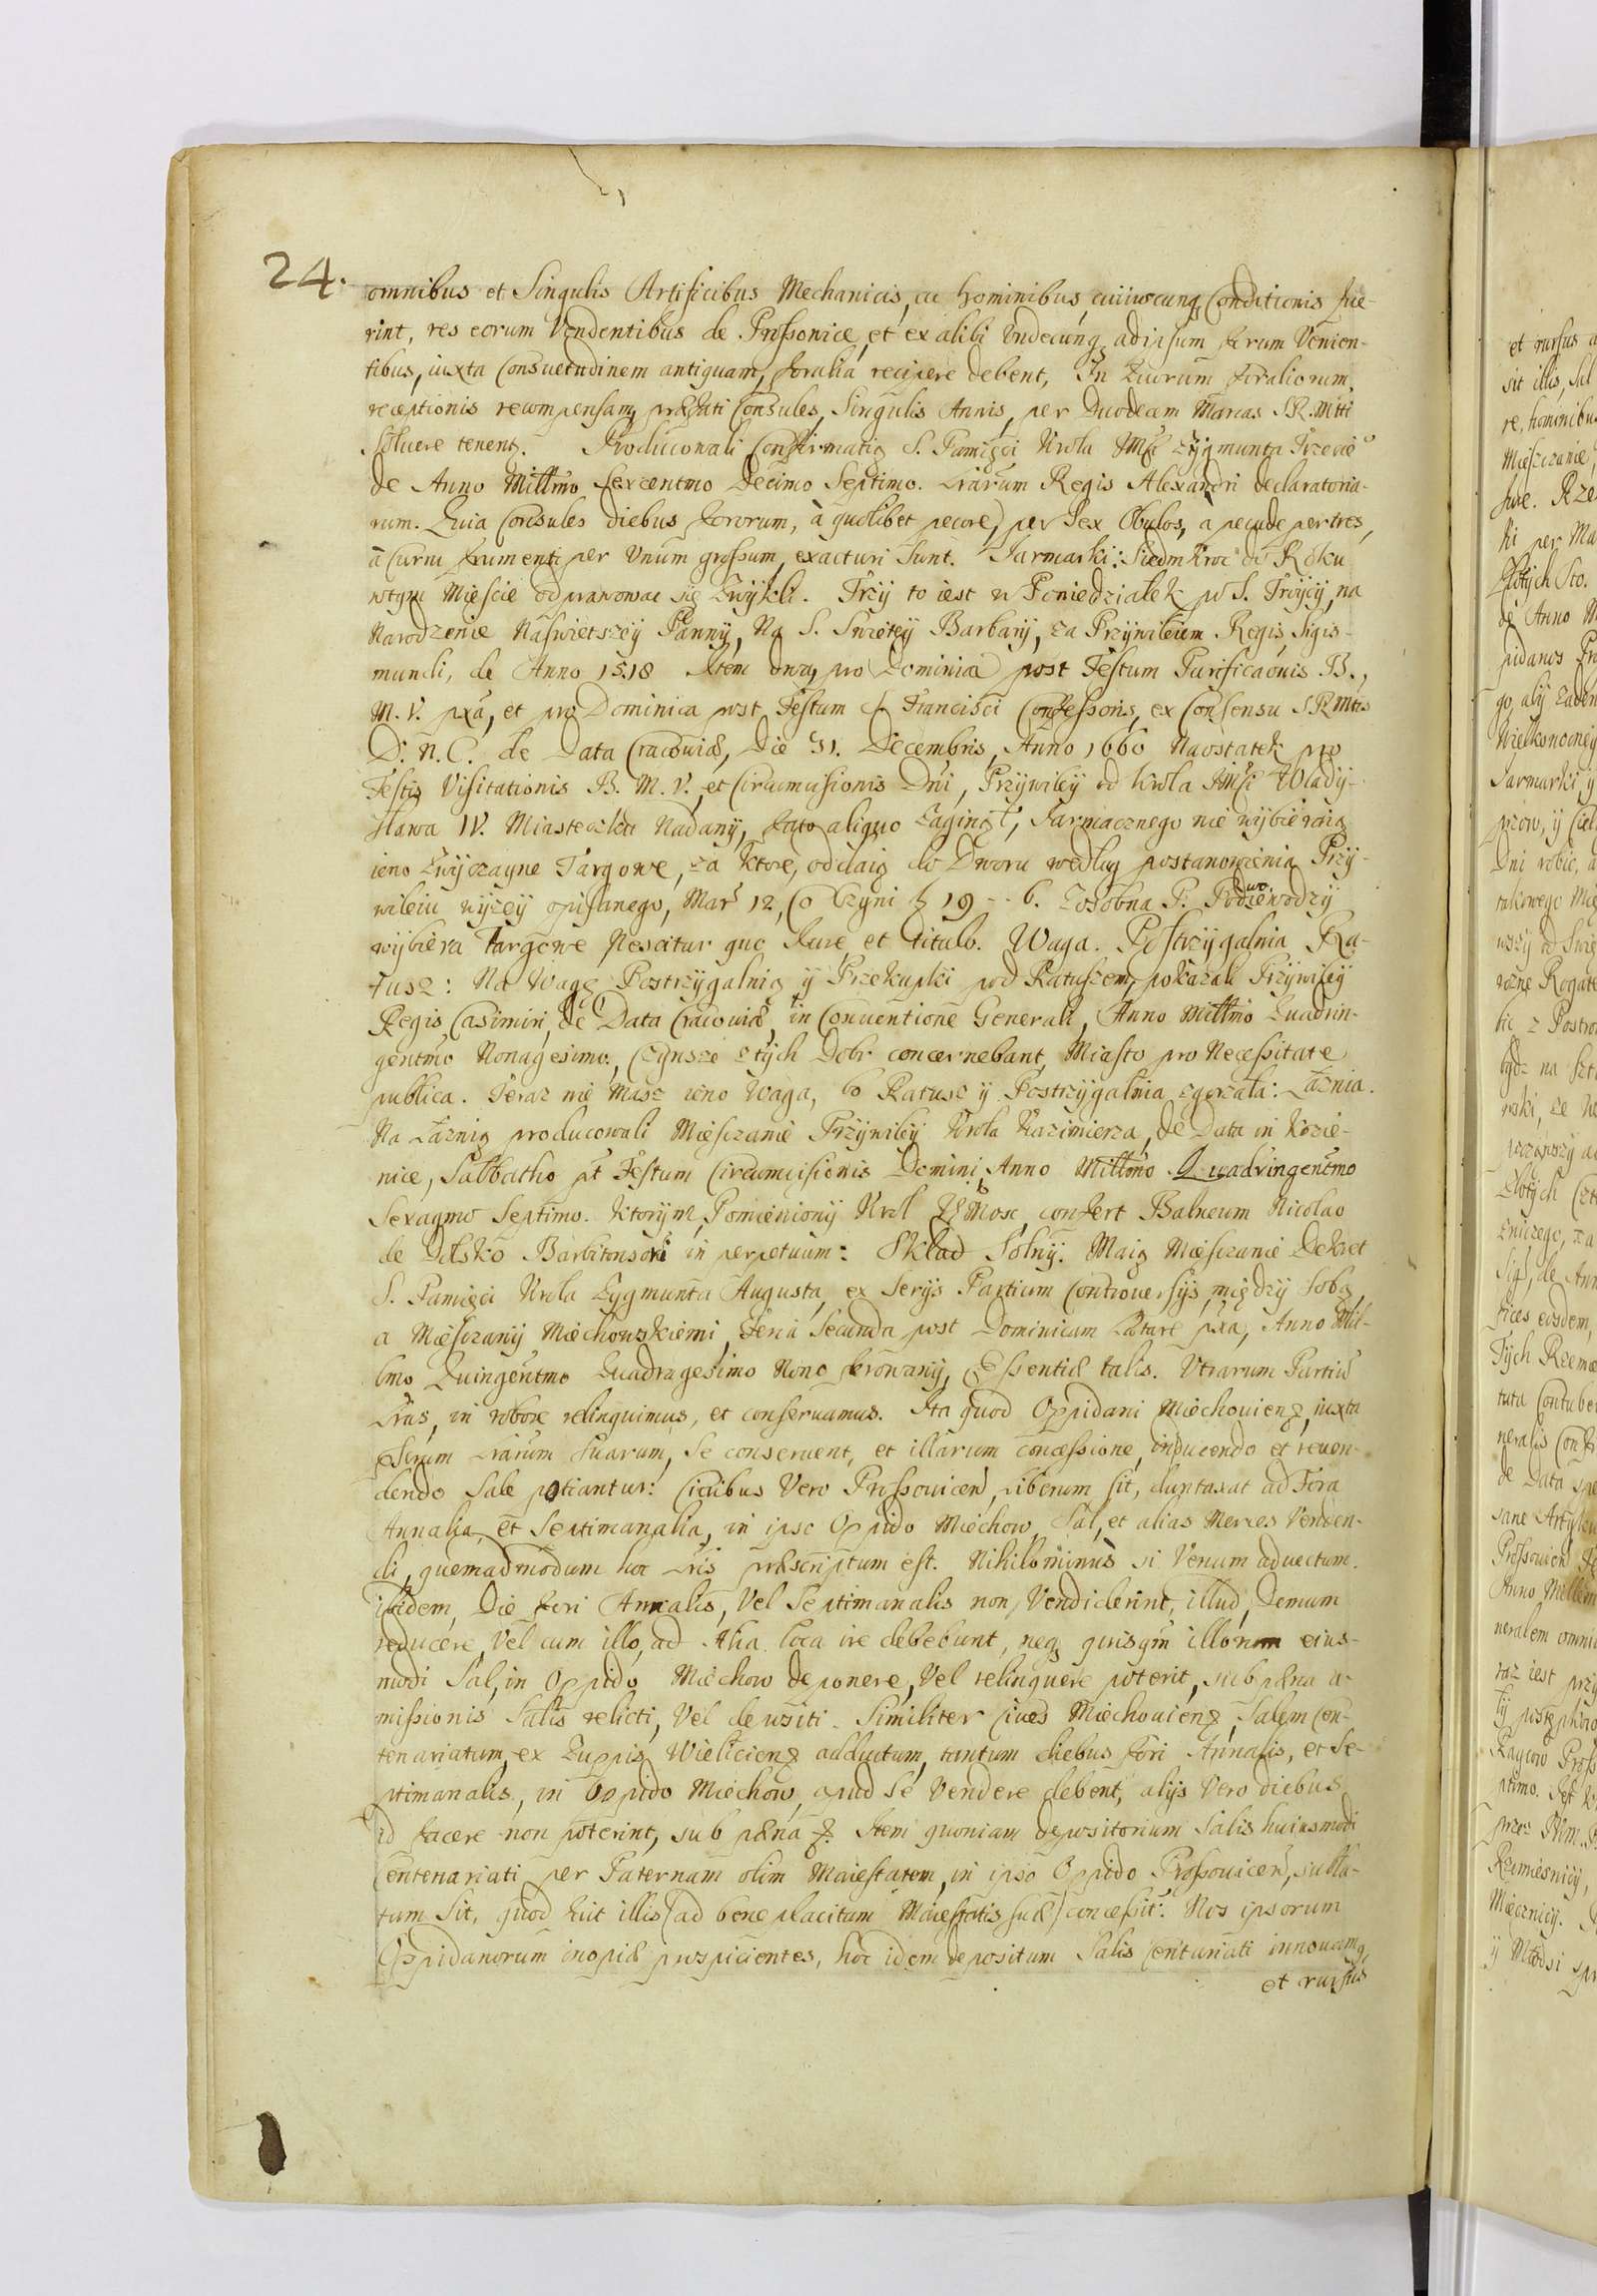 24.
omnibus et Singulis Artificibus Mechanicis, ac hominibus, cuiuscunq Conditionis fue-
rint, res eorum Vendentibus de Prossovice, et ex alibi Vndecunq ad ipsum forum Venien-
tibus, iuxta Consuetudinem antiquam, foralia recipere debent, In Quorum foraliorum
receptionis recompensam, præfati Consules, Singulis Annis, per Duodecim Marcas S.R.Mtti
Soluere tenent. Producowali Confirmatią S. Pamięci Krola Jmści Zygmunta Trzecie°
de Anno Millmo Sexcentmo Decimo Septimo. Lrarum Regis Alexandri declaratoria-
rum. Quia Consules diebus fororum, à quolibet pecore, per sex Obulos, à pecude per tres,
à Curru frumenti per Vnum grossum, exacturi sunt. Jarmarki: Siedm kroc do Roku
wtym Mieście odprawowac się Zwykli. Trzy to iest w Poniedziałek po S. Troycy, na
Narodzenie Naswietszey Panny, Na S. Swietey Barbary, za Przywileium Regis Sigis-
mundi, de Anno 1518 Item dwa, pro Dominica post Festum Purificaonis B.,
M. V. pxa, et pro Dominica post Festum S. Francisci Confessoris, ex Consensu S R Mtis
D. N. C. de Data Cracouiæ, Die 31. Decembris, Anno 1660 Naostatek pro
Festis Visitationis B. M. V. et Circumcisionis Dni, Przywiley od Krola Jmści Włady-
sława IV. Miasteczku Nadany, fato aliquo Zaginął, Jarmacznego nie wybieraią
ieno Zwyczayne Targowe, za ktore, oddaią do Dworu według postanowienia Przy-
wileiu wyzey opisanego, Mar 12, Co Czyni f 19 -- 6. Zosobna P. Podwoiewodzy
wybiera Targowe Nescitur quo Iure et titulo. Waga. Postrzygalnia Ra-
tusz: Na Wagę Postrzygalnią y Przekupki pod Ratuszem, pokazali Przywiley
Regis Casimiri, de Data Cracouiæ, in Conuentione Generali, Anno Millmo Quadrin-
gentmo Nonagesimo, Czynsze z tych Dobr concernebant Miasto pro Necessitate
publica. Teraz nie Masz ieno Waga, bo Ratusz y Postrzygalnia zgorzała: Łaznia.
Na Łaznią producowali Miesczanie Przywiley Krola Kazimierza, de Data in Kozie-
nice, Sabbatho pt Festum Circumcisionis Domini Anno Millmo Quadringentmo
Sexagmo Septimo. Ktorym Pomieniony Krol JeMosc, confert Balneum Nicolao
de Barbitonsori in perpetuum: Skład Solny. Maią Miesczanie Dekret
S. Pamięci Krola Zygmunta Augusta, ex Serys Partium Controuersys, między Sobą,
a Miesczany Miechowskiemi, Feria Secunda post Dominicam Lætare pxa, Anno Mil-
lmo Quingentmo Quadragesimo Nono ferowany, Essentiæ talis. Vtrarum Partiu
Lras, in robore relinquimus, et conseruamus. Ita quod Oppidani Miechouienz, iuxta
Serum Lrarum Suarum, Se conseruent, et illarum concessione, inducendo et reuen-
dendo Sale potiantur: Ciuibus Vero Prossouicen, Liberum sit, duntaxat ad Fora
Annalia et Septimanalia, in ipso Oppido Miechow, Sal, et alias Merces Venden-
di, quemadmodum hoc Lris præscriptum est. Nihilominus si Venum aduectum
ibidem, Die fori Annalis, Vel Septimanalis non Vendiderint, illud, Demum
reducere, Vel cum illo, ad Alia loca ire debebunt, neq quisqm illorum eius-
modi Sal, in Oppido Miechow deponere, Vel relinquere poterit, sub pæna a-
missionis Salis relicti, Vel depositi. Similiter Ciues Miechouienz, Salem Cen-
tenariatum, ex Zuppis Wieliciens adductum, tantum diebus fori Annalis, et Se-
ptimanalis, in Oppido Miechow, apud se Vendere debent, alys Vero diebus
id facere non poterint, sub pæna . Item quoniam depositorium Salis huiusmodi
Centenariati per Paternam olim Maiestatem, in ipso Oppido Prossouicen, subla-
tum Sit, quod fuit illis (ad bene placitum Maiestatis suæ) concessit. Nos ipsorum
Oppidanorum inopiæ prospicientes, hoc idem depositum Salis Centuriati innouamq
et rursus